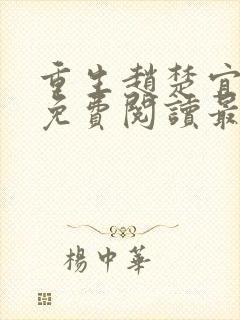 重生趙楚宜
免費閱讀最
楊中華